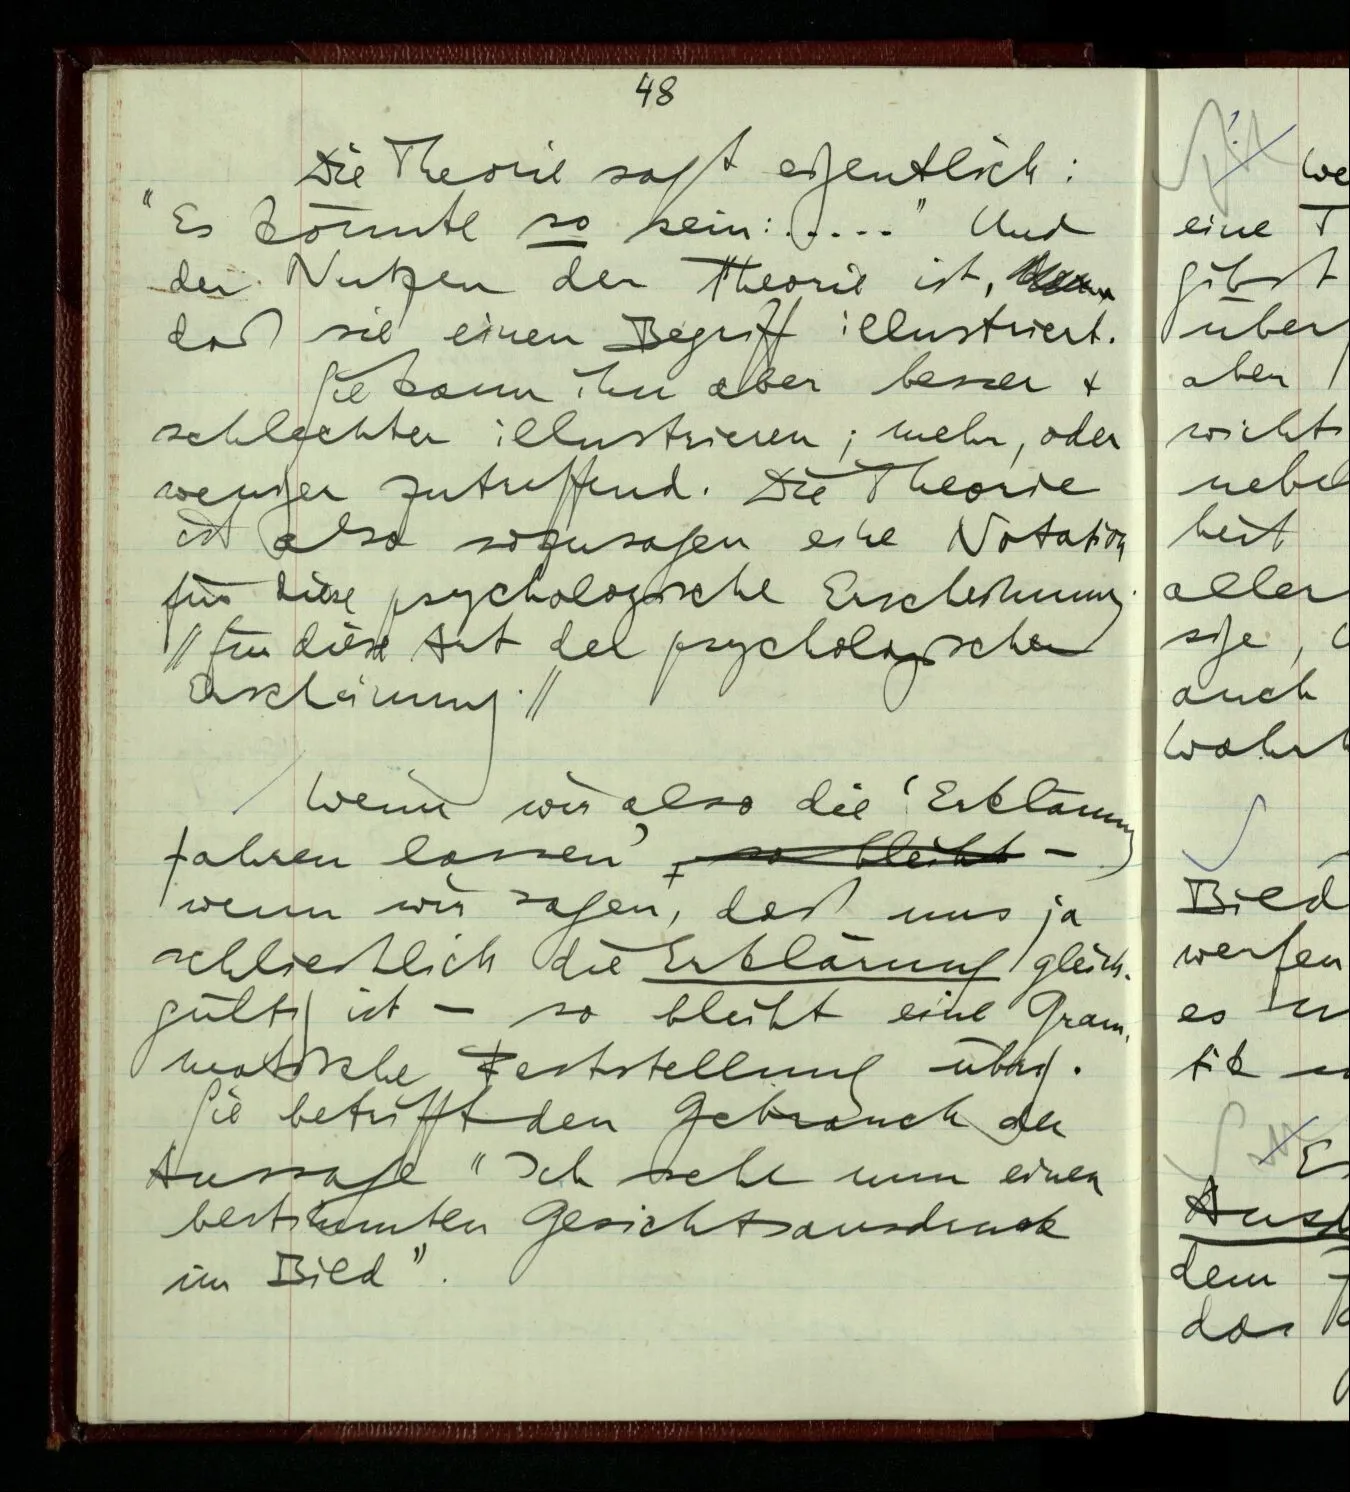 48
Die Theorie sagt eigentlich:
"Es könnte so sein: ....." Und
der Nutzen der Theorie ist,
daß sie einen Begriff illustriert.
Sie kann ihn aber besser +
schlechter illustrieren; mehr, oder
weniger zutreffend. Die Theorie
ist also sozusagen eine Notation
für diese psychologische Erscheinung.
// für diese Art der psychologischen
Erscheinung. //
Wenn wir also die 'Erklärung
fahren lassen', so bleibt –
wenn wir sagen, daß uns ja
schließlich die Erklärung gleich-
gültig ist – so bleibt eine Gram-
matische Feststellung übrig.
Sie betrifft den Gebrauch der
Aussage "Ich sehe nun einen
bestimmten Gesichtsausdruck
im Bild".
eine
gibst
über
aber
nichts
nebel
heit
aller
auch
Bild
werfen
es
tik
dem
das